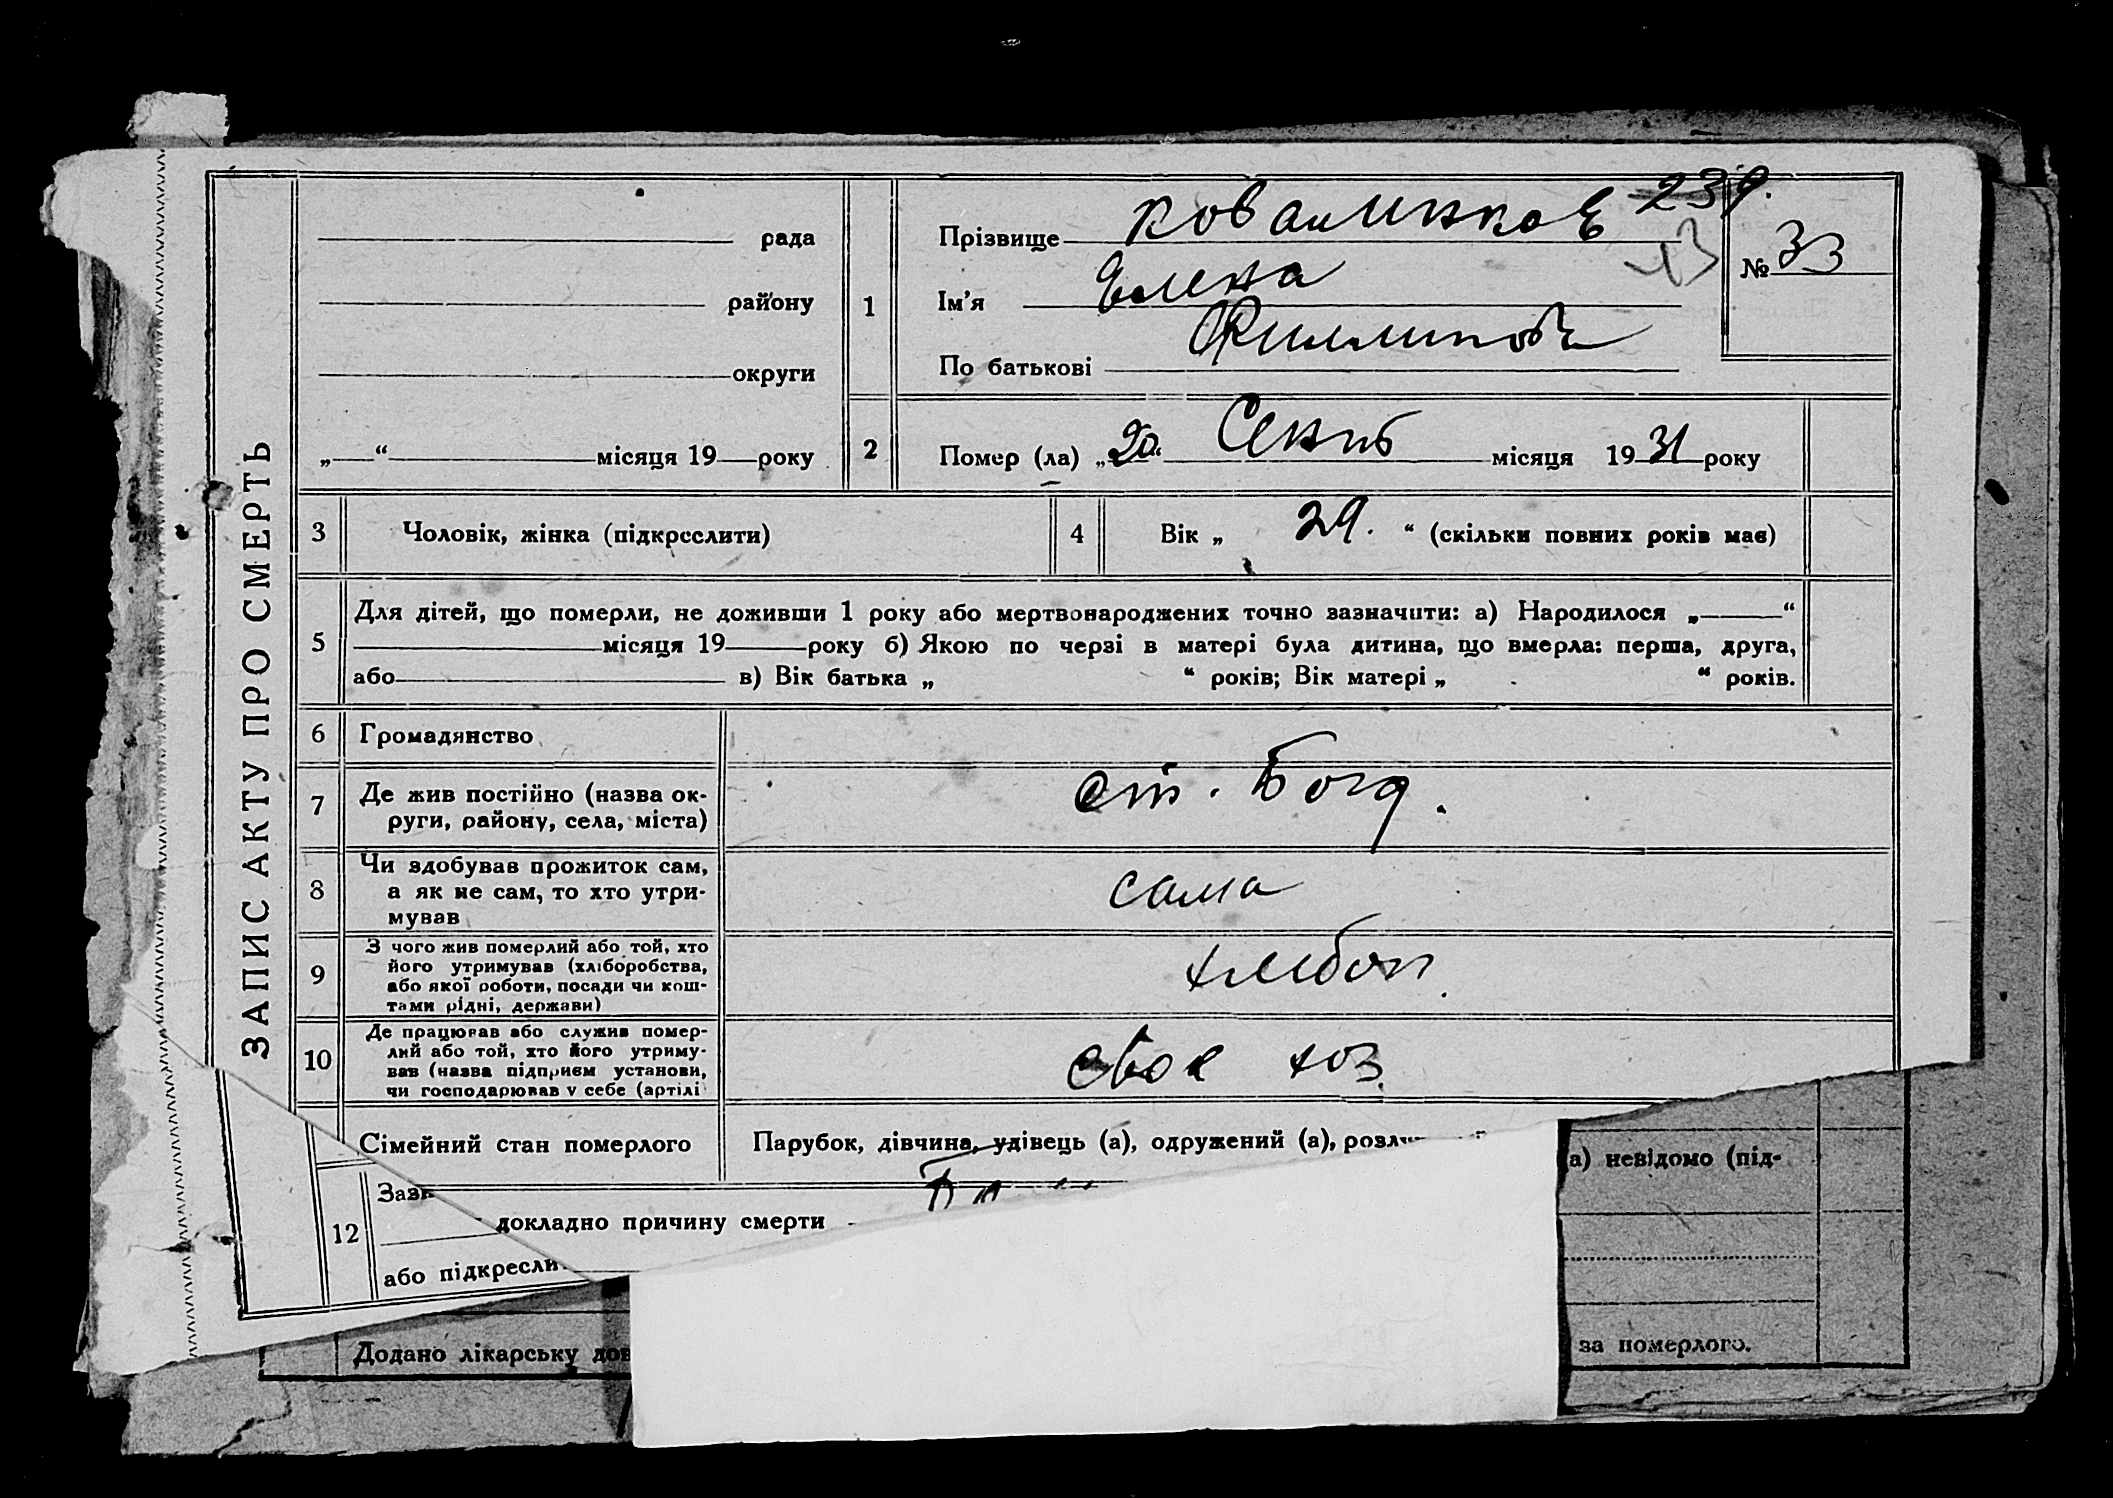 ЗАПИС АКТУ ПРО СМЕРТЬ
рада
району
округи
„ “ місяця 19 року
1
Прізвище
239.
Ім’я Елена
По батькові
№ 33
2
Помер (ла) „20“ Сентб місяця 1931 року
3 Чоловік, жінка (підкреслити)
4 Вік „ 29. “ (скільки повних років має)
5
Для дітей, що померли, не доживши 1 року або мертвонароджених точно зазначити: а) Народилося „ “
місяця 19 року б) Якою по черзі в матері була дитина, що вмерла: перша, друга,
або в) Вік батька „ “ років; Вік матері „ “ років.
6 Громадянство
7 Де жив постійно (назва ок-
руги, району, села, міста)
ст. Богд.
8 Чи здобував прожиток сам,
а як не сам, то хто утри-
мував
сама
9 З чого жив померлий або той, хто
його утримував (хліборобства,
або якої роботи, посади чи кош-
тами рідні, держави)
хлебоп.
10 Де працював або служив помер-
лий або той, хто його утриму-
вав (назва підприєм установи,
чи господарював у себе (артілі
свое хоз.
Сімейний стан померлого
Парубок, дівчина, удівець (а), одружений (а),
а) невідомо (під-
12
докладно причину смерти
або
Додано лікарську
за померлого.